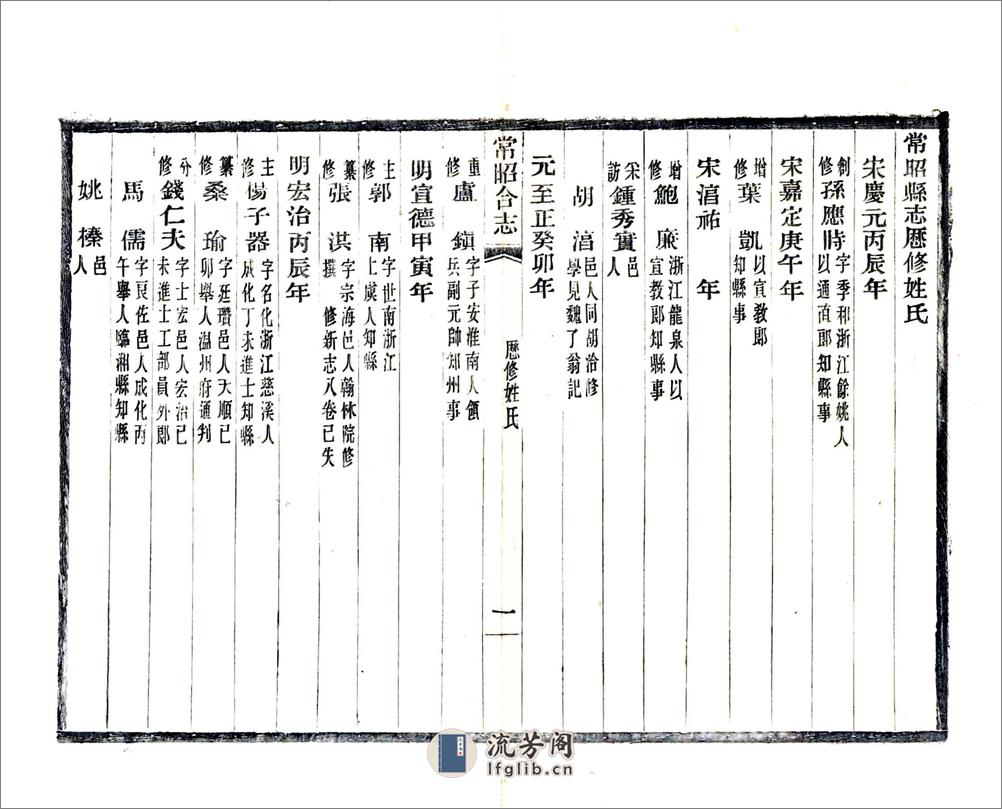 常昭縣志歷修姓氏
宋慶元丙辰年
創修 孫應時 字季和浙江餘姚人以通直郎知縣事
宋嘉定庚午年
增修 葉凱 以宣教郎知縣事
宋湻祐 年
增修 鮑廉 浙江龍泉人以宣教郎知縣事
采訪 鍾秀實 邑人
胡湻 邑人同胡洽修學見魏了翁記
元至正癸卯年
常昭合志
歷修姓氏
一
重修 盧鎭 字子安淮南人領兵副元帥知州事
明宣德甲寅年
主修 郭南 字世南浙江上虞人知縣
纂修 張淇 字宗海邑人翰林院修撰 修新志八卷已失
明宏治丙辰年
主修 楊子器 字名化浙江慈溪人成化丁未進士知縣
纂修 桑瑜 字廷瓚邑人天順已卯舉人温州府通判
分修 錢仁夫 字士宏邑人宏治已未進士工部員外郎
馬儒 字良佐邑人成化丙午舉人臨湘縣知縣
姚榛 邑人
流芳阁
lfglib.cn